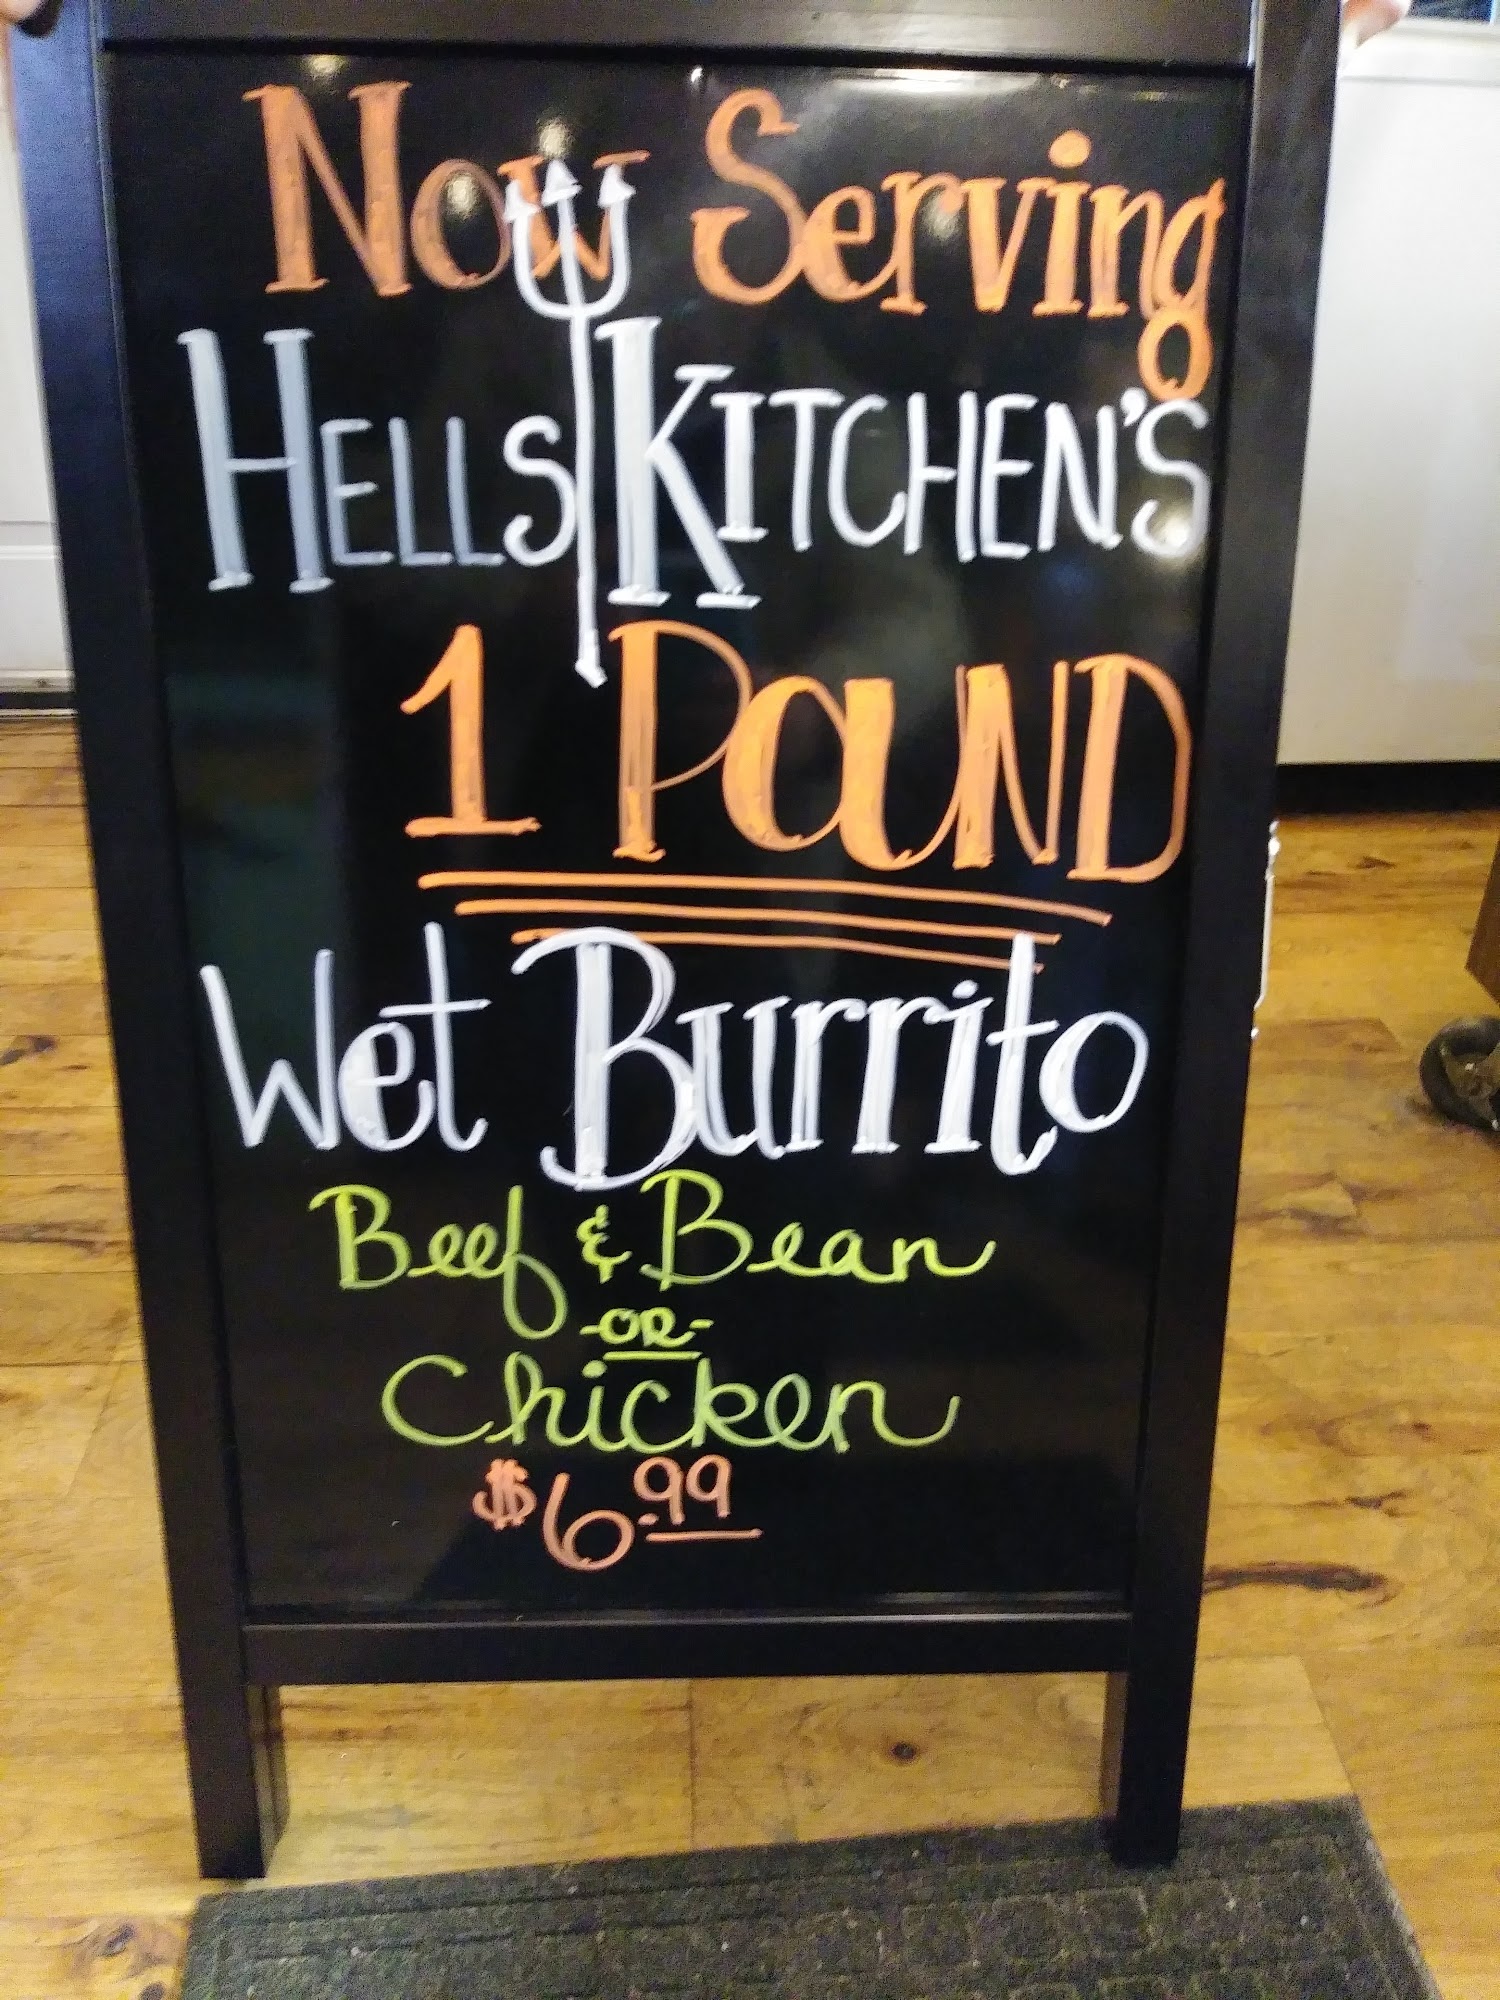 Now Serving
HELLS KITCHEN'S
1 POUND
Wet Burrito
Beef & Bean
-OR-
Chicken
$6.99